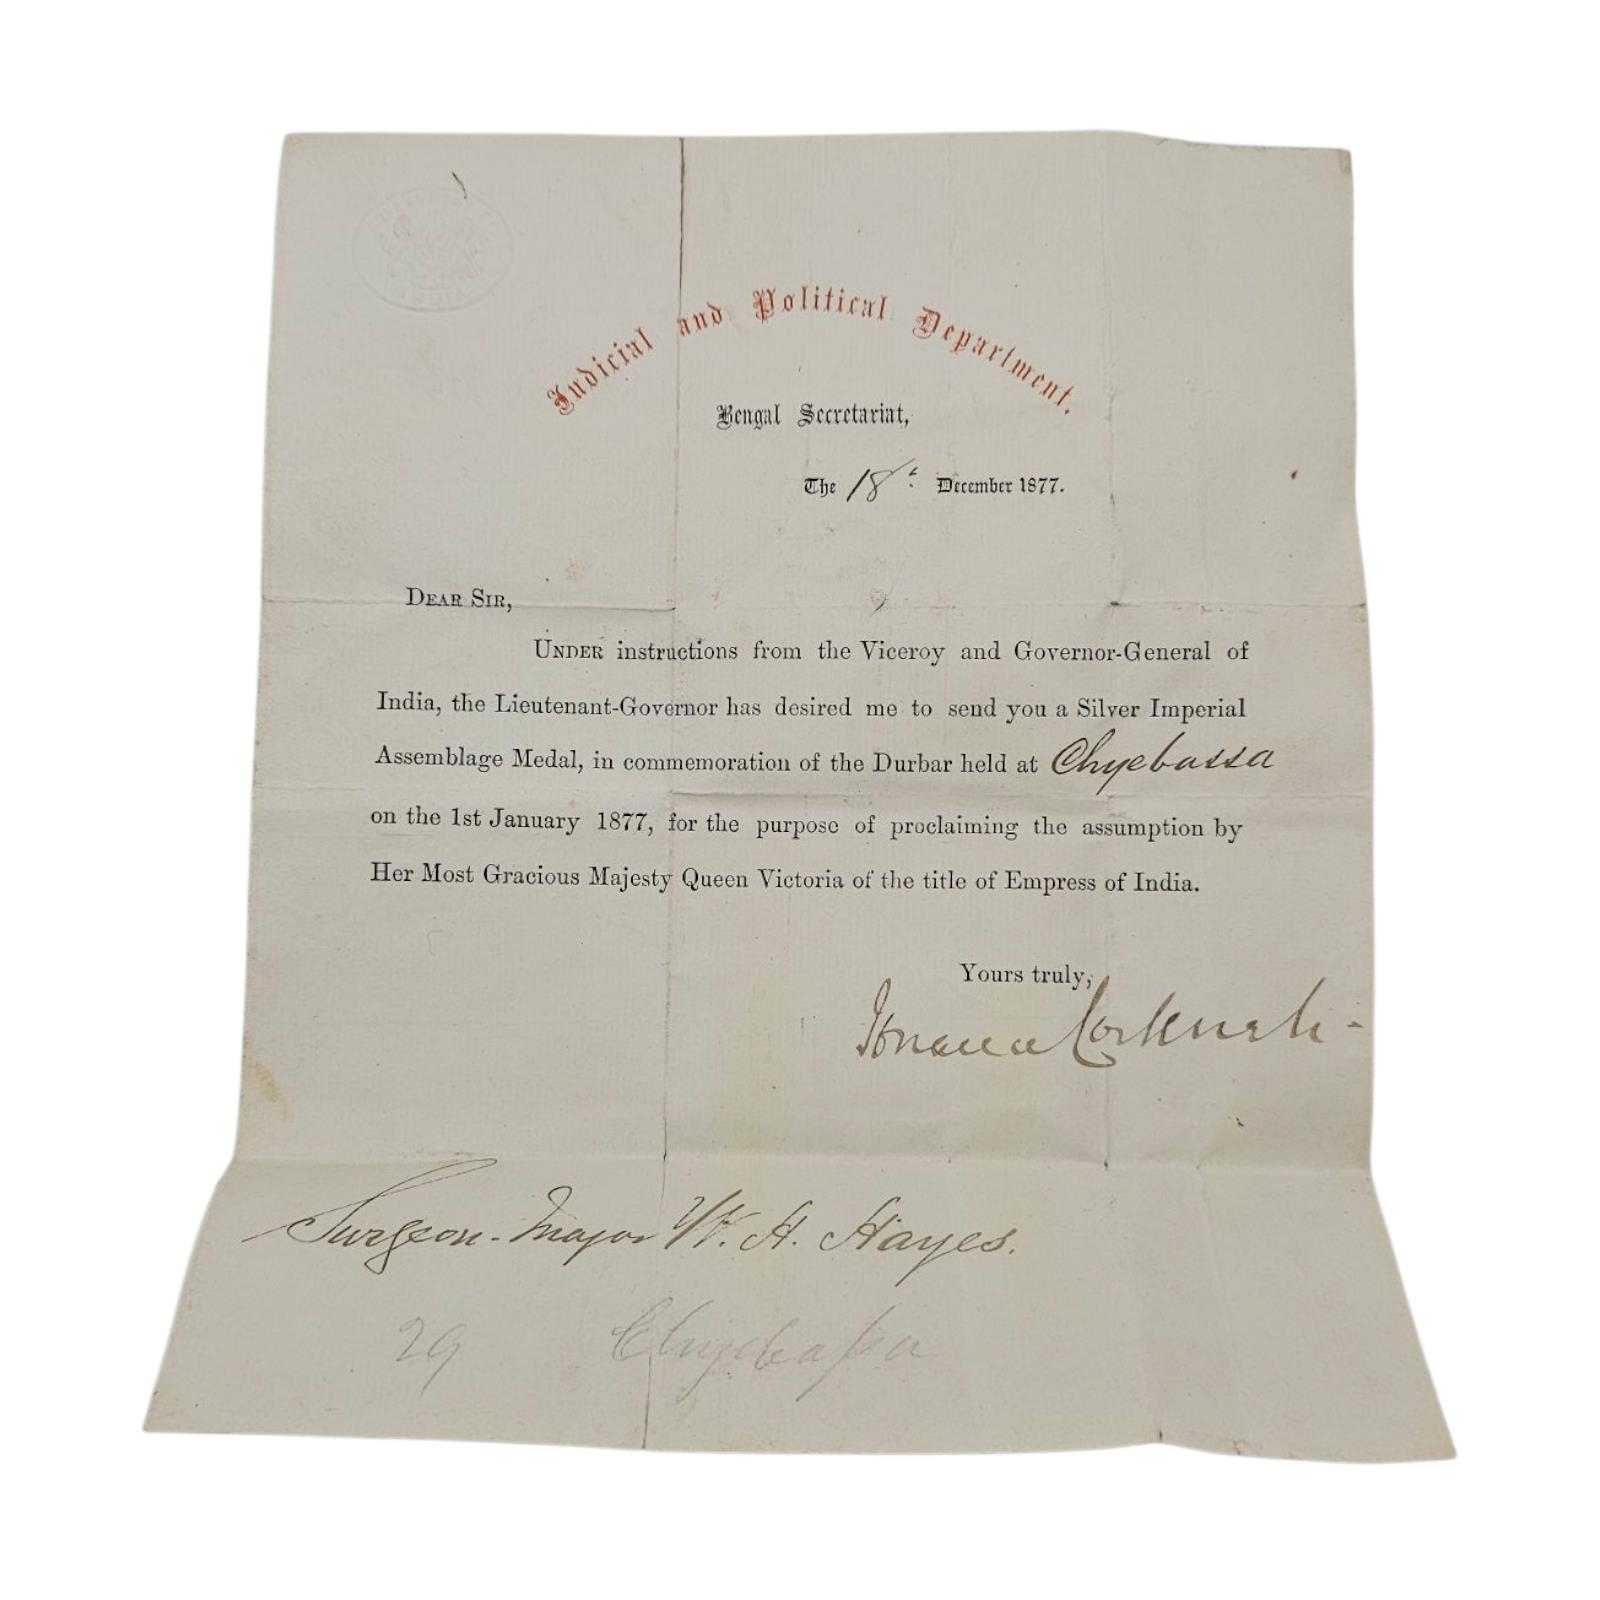 Judicial and Political Department.
Bengal Secretariat,
The 18th December 1877.
DEAR SIR,
UNDER instructions from the Viceroy and Governor-General of
India, the Lieutenant-Governor has desired me to send you a Silver Imperial
Assemblage Medal, in commemoration of the Durbar held at Chyebassa
on the 1st January 1877, for the purpose of proclaiming the assumption by
Her Most Gracious Majesty Queen Victoria of the title of Empress of India.
Yours truly,
Surgeon-Major W. H. Hayes.
29 Chyebassa